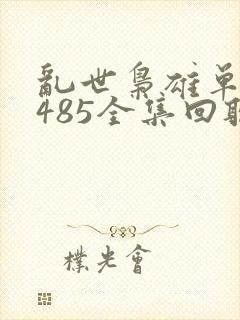 亂世梟雄单
485全集回
樸光會